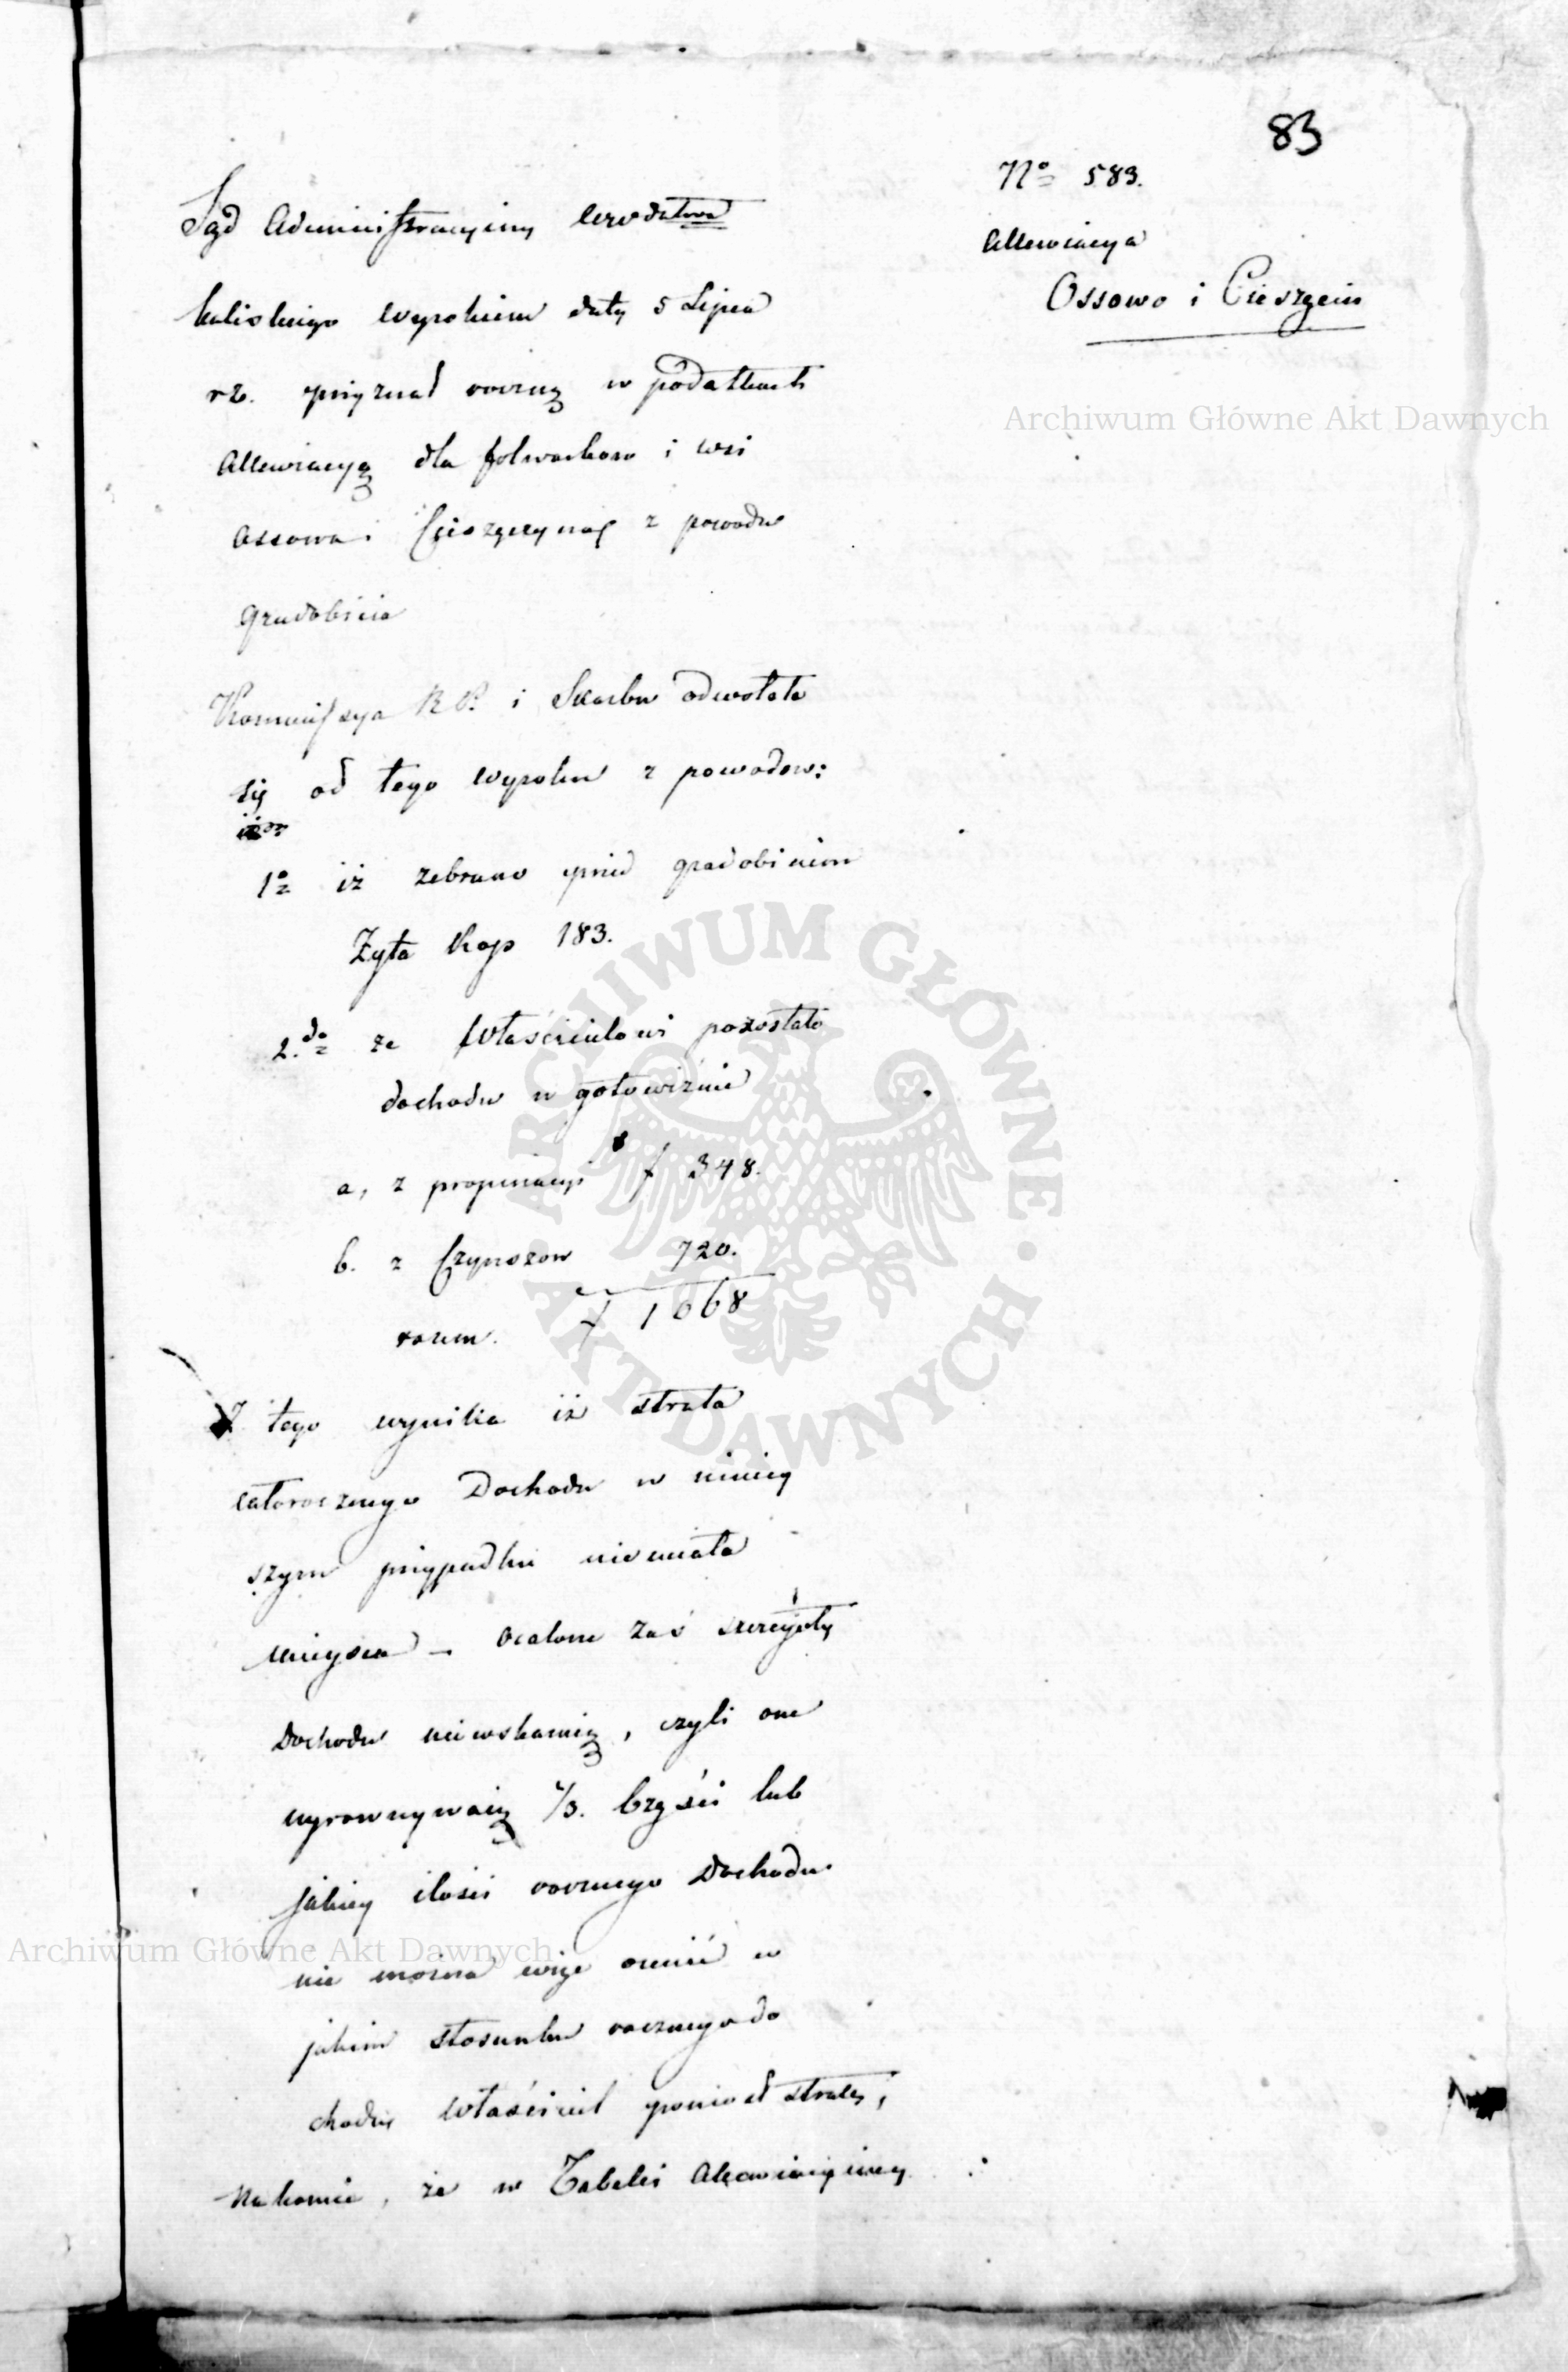 83
Nº 583.
Allewiacya
Ossowo i Cieszęcin
Sąd Administracyiny Wodztwa
Kaliskiego Wyrokiem daty 5 Lipca
rb. przyznał roczną w podatkach
Allewiacyą dla folwarkow i wsi
Ossowa i Cieszęcyna z powodu
Gradobicia
Kommissya R P. i Skarbu odwołała
się od tego Wyroku z powodow:
1º iż zebrano przed gradobiciem
Żyta Kop 183.
2.do że Właścicielowi pozostało
dochodu w gotowiźnie
a, z propinacyi f 348.
b. z Czynszow 720.
razem. f 1068
Z tego wynika iż strata
całorocznego Dochodu w niniey
szym przypadku niemiała
mieysca – Ocalone zaś szczegóły
Dochodu niewskazuią, czyli one
wyrownywaią 1/3. Części lub
jakiey ilości rocznego Dochodu
nie można więc ocenić w
jakim stosunku rocznego do
chodu Właściciel poniosł stratę,
Nakoniec, że w Tabelli Allewiacyiney
Archiwum Główne Akt Dawnych
ARCHIWUM GŁÓWNE AKT DAWNYCH
Archiwum Główne Akt Dawnych